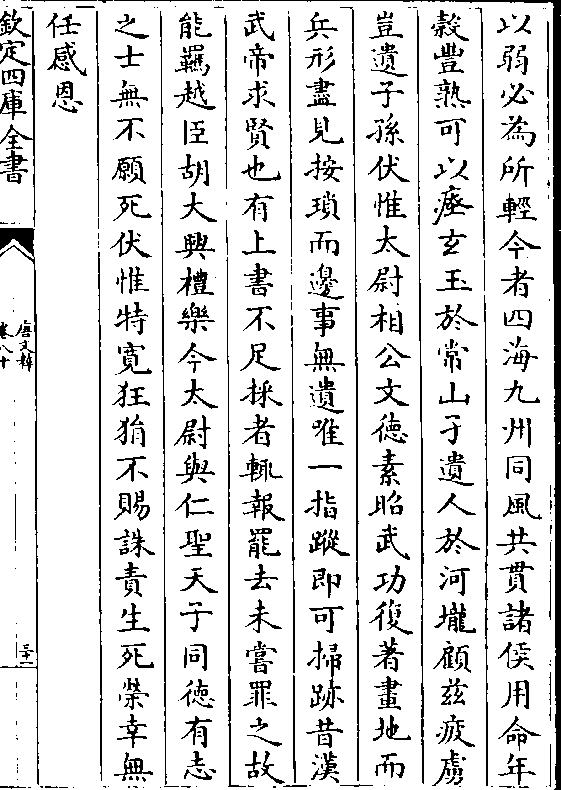 以弱必為所輕今者四海九州同風共貫諸侯用命年
穀豐熟可以瘞玄玉於常山孑遺人於河壠顧兹疲虜
豈遺子孫伏惟太尉相公文徳素昭武功復著畫地而
兵形盡見按瑣而邊事無遺唯一指蹤即可掃跡昔漢
武帝求賢也有上書不足採者輒報罷去未嘗罪之故
能羈越臣胡大興禮樂今太尉與仁聖天子同徳有志
之士無不願死伏惟特寛狂狷不賜誅責生死榮幸無
任感恩
欽定四庫全書
唐文粹
卷八十
三十一